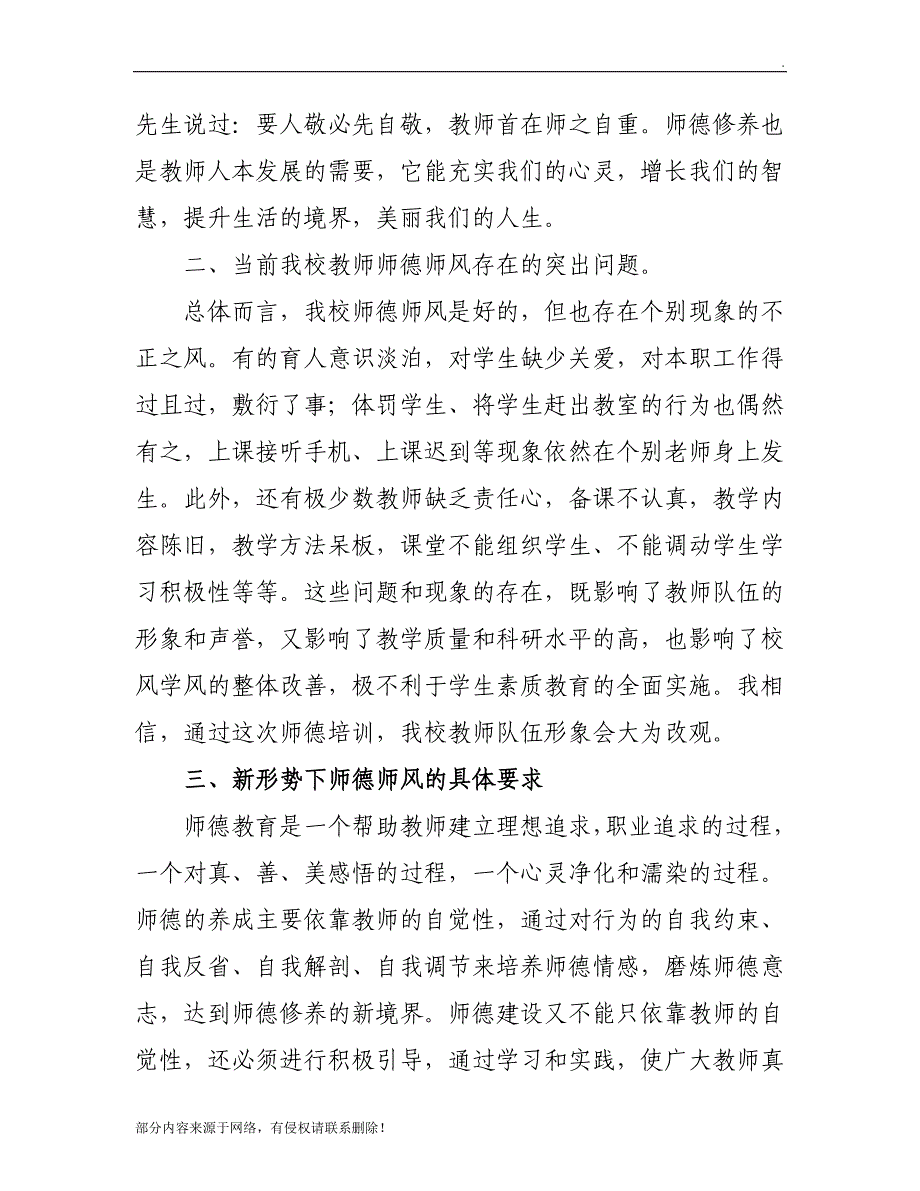 先生说过：要人敬必先自敬，教师首在师之自重。师德修养也
是教师人本发展的需要，它能充实我们的心灵，增长我们的智
慧，提升生活的境界，美丽我们的人生。
二、当前我校教师师德师风存在的突出问题。
总体而言，我校师德师风是好的，但也存在个别现象的不
正之风。有的育人意识淡泊，对学生缺少关爱，对本职工作得
过且过，敷衍了事；体罚学生、将学生赶出教室的行为也偶然
有之，上课接听手机、上课迟到等现象依然在个别老师身上发
生。此外，还有极少数教师缺乏责任心，备课不认真，教学内
容陈旧，教学方法呆板，课堂不能组织学生、不能调动学生学
习积极性等等。这些问题和现象的存在，既影响了教师队伍的
形象和声誉，又影响了教学质量和科研水平的高，也影响了校
风学风的整体改善，极不利于学生素质教育的全面实施。我相
信，通过这次师德培训，我校教师队伍形象会大为改观。
三、新形势下师德师风的具体要求
师德教育是一个帮助教师建立理想追求，职业追求的过程，
一个对真、善、美感悟的过程，一个心灵净化和濡染的过程。
师德的养成主要依靠教师的自觉性，通过对行为的自我约束、
自我反省、自我解剖、自我调节来培养师德情感，磨炼师德意
志，达到师德修养的新境界。师德建设又不能只依靠教师的自
觉性，还必须进行积极引导，通过学习和实践，使广大教师真
部分内容来源于网络，有侵权请联系删除！